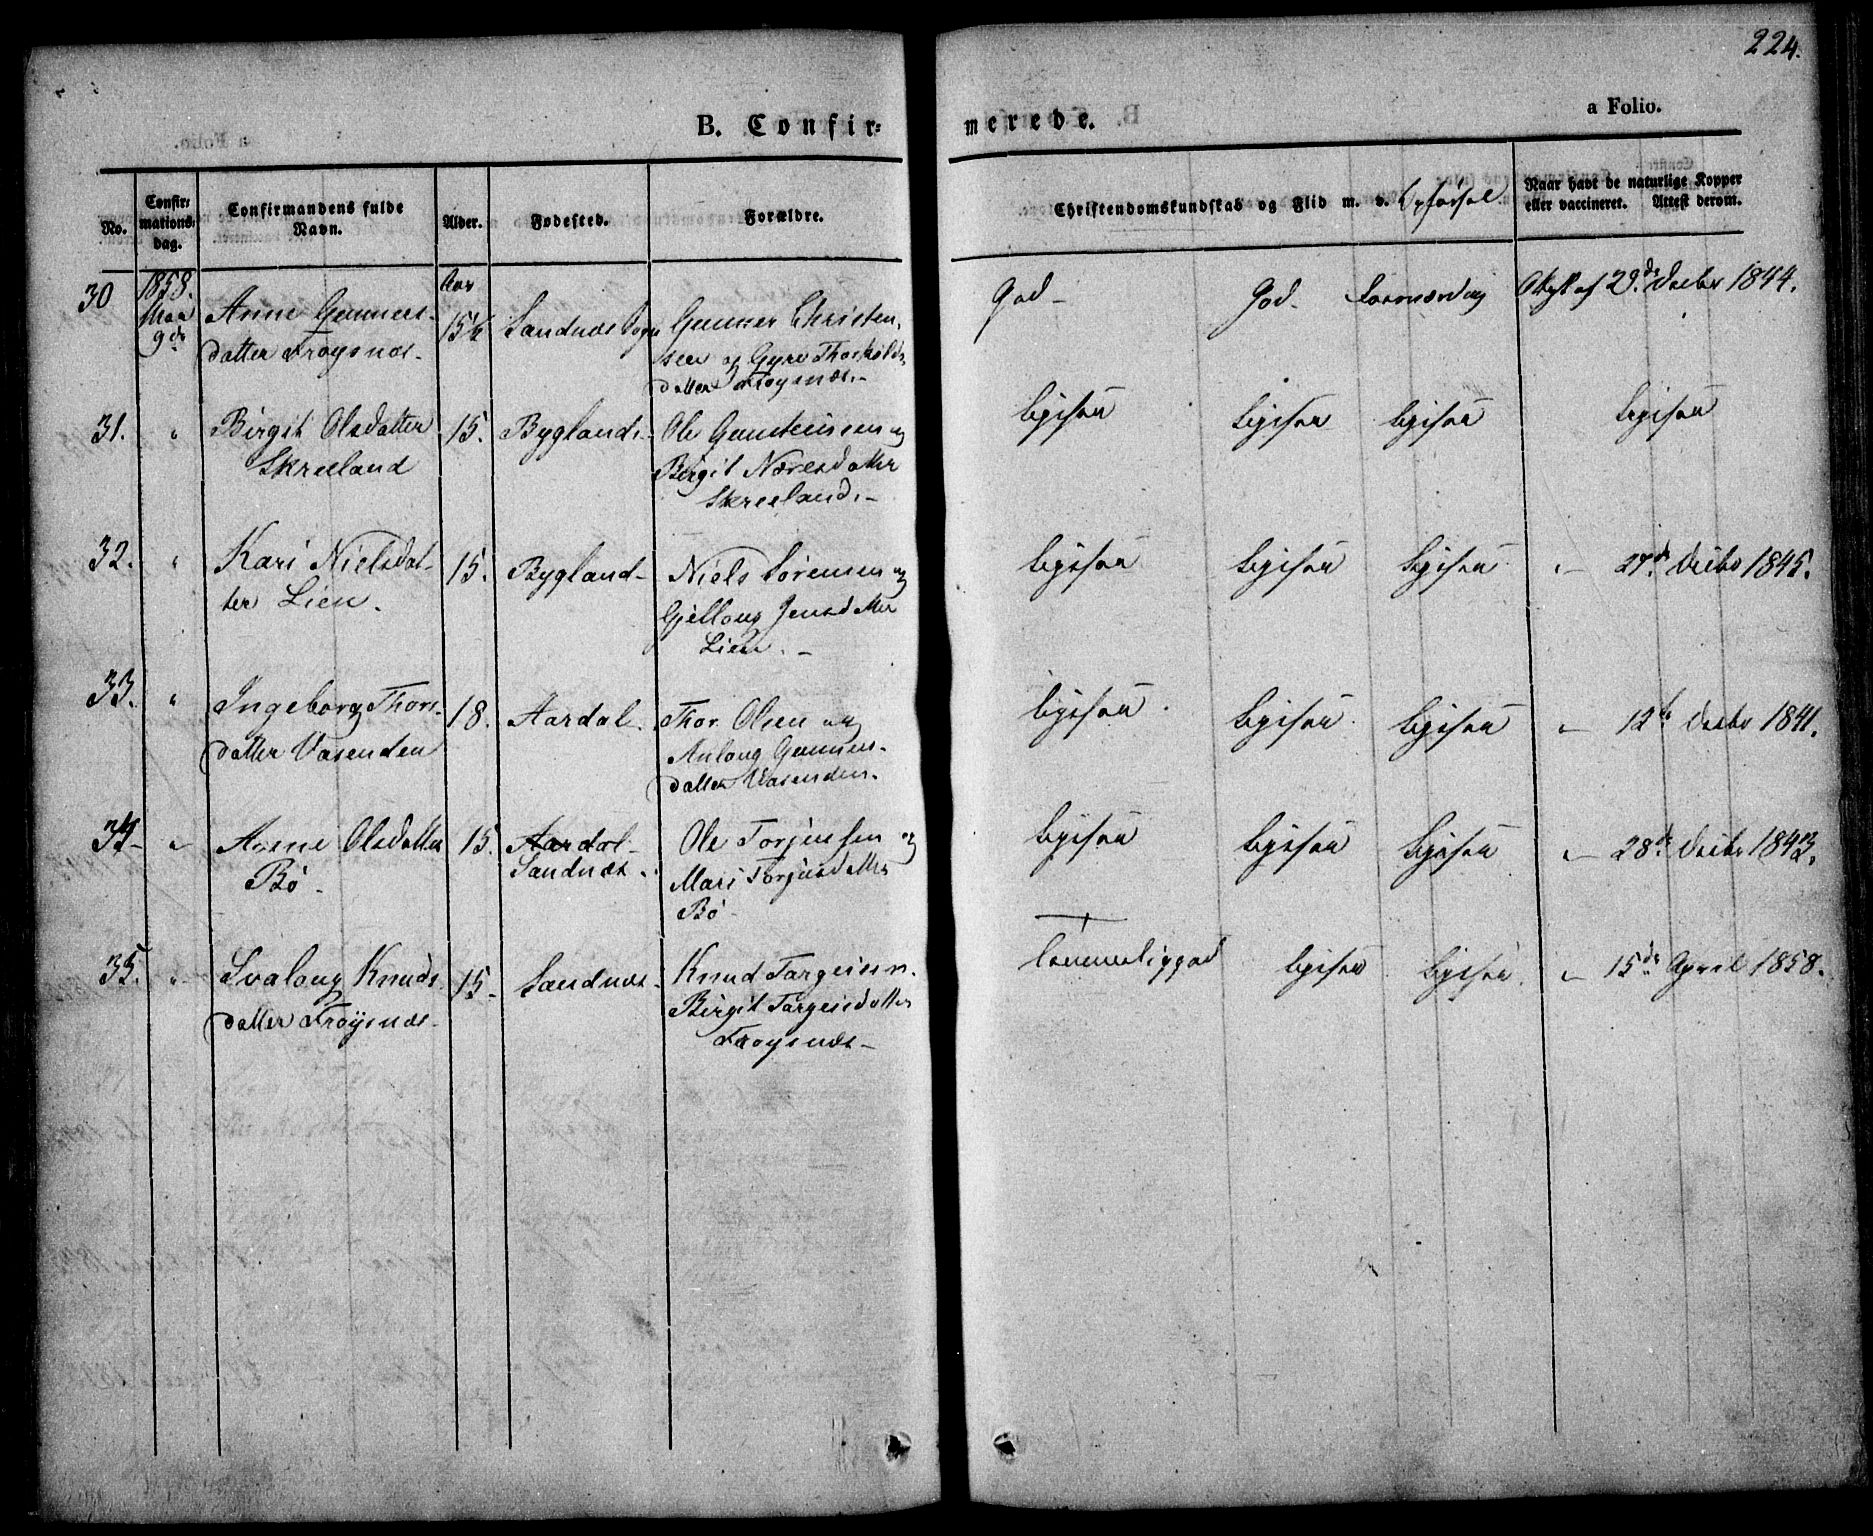 224.
B. Confir- merede.
a Folio.
No.
Confir-
mations-
dag.
Confirmandens fulde
Navn.
Alder.
Fødested.
Forældre.
Christendomskundskab og Flid m. v. Opførsel
Naar havt de naturlige Kopper
eller vaccineret. Attest derom.
30
1858.
9de
Anne Gunners-
datter Frøysnæs.
Aar
15½
Sandnæs Sogn
Gunner Christen-
sen og Gyro Thorkilds-
datter Frøysnæs.
God
God.
Attest af 29de Decbr 1844.
31. "
Birgit Olsdatter
Skreeland
15.
Byglands
Ole Gunsteinsen og
Birgit Næresdatter
Skreeland.
Ligesaa
Ligesaa
Ligesaa
Ligesaa
32. "
Kari Nielsdat-
ter Lien.
15.
Bygland
Niels Sørensen og
Gjelloug Jensdatter
Lien.
Ligesaa
Ligesaa
Ligesaa
" 27d. Decbr 1845.
33. "
Ingeborg Thors-
datter Vasenden
18.
Aardal.
Thor Olsen og
Anlaug Gunners-
datter Vasenden.
Ligesaa.
Ligesaa.
Ligesaa
" 12te Decbr 1841.
34 "
Anne Olsdatter
Bø.
15.
Aardal
Sandnæs.
Ole Torjussen og
Mari Torjusdatter
Bø
Ligesaa
Ligesaa
Ligesaa
" 28de Decbr 1843.
35. "
Svaloug Knuds-
datter Frøysnæs.
15.
Sandnæs.
Knud Targeisen.
Birgit Targeisdatter
Frøysnæs
Temmelig god
Ligesaa
Ligesaa.
" 15de April 1858.